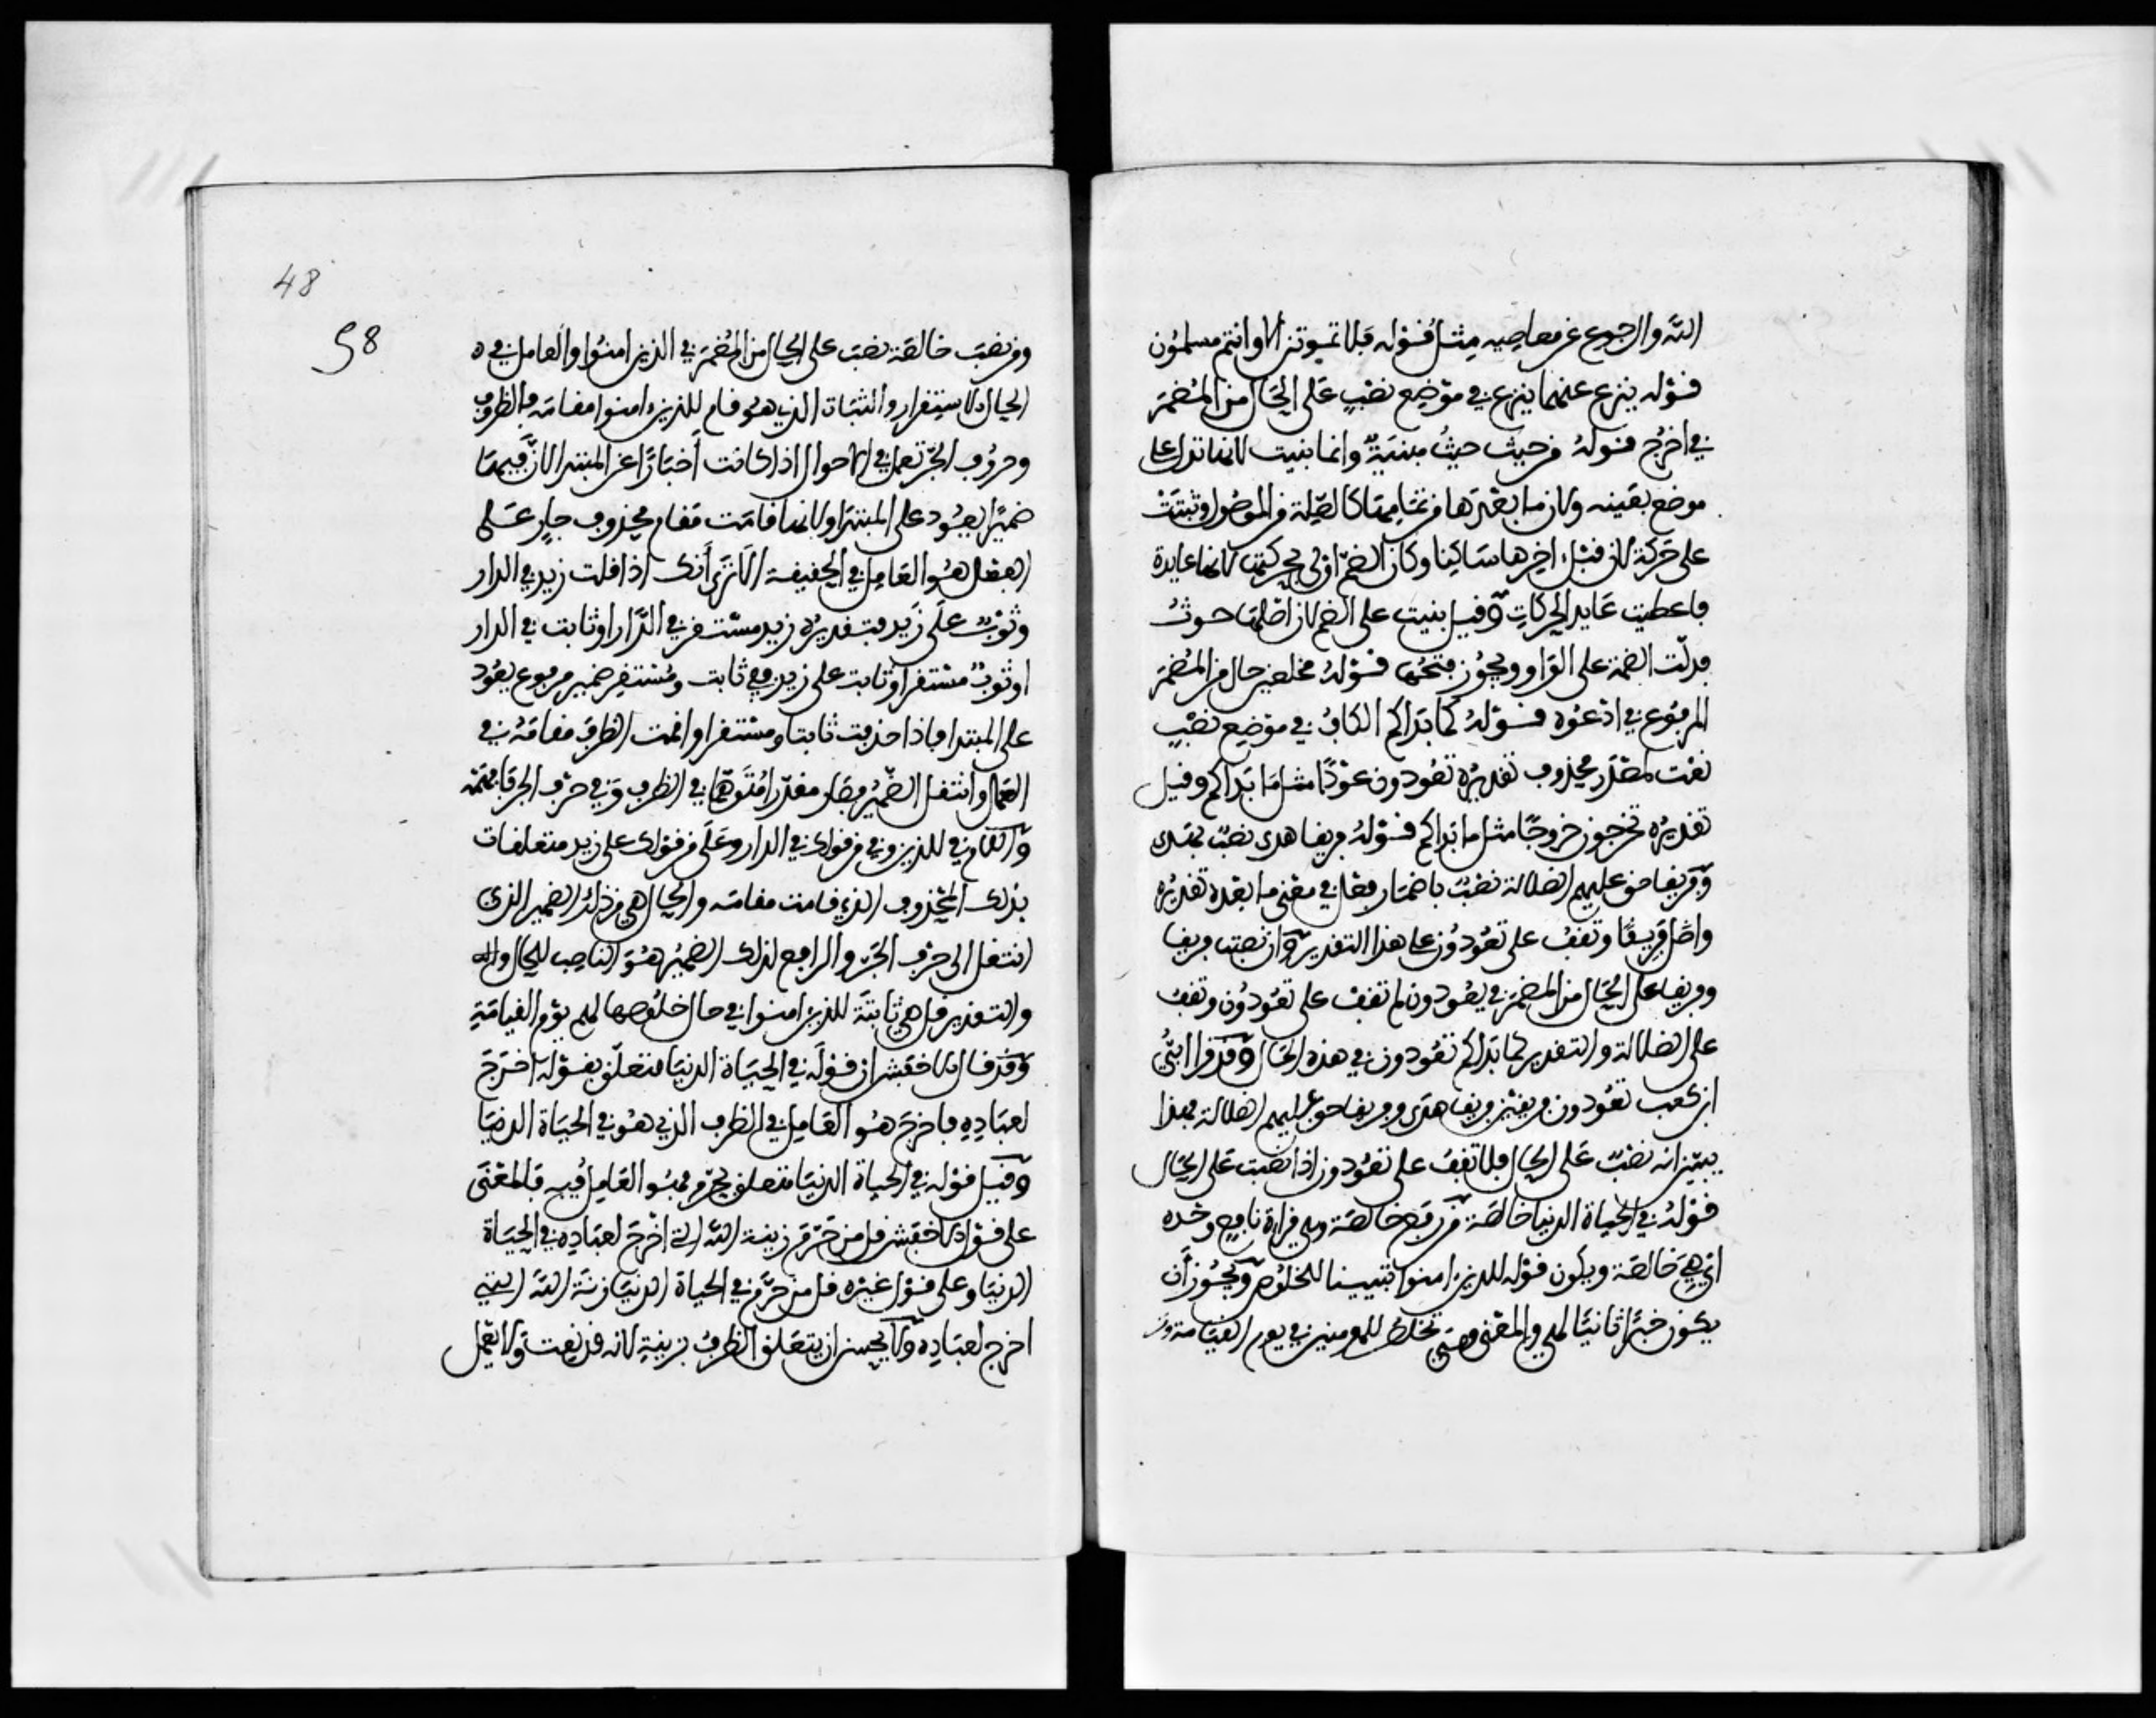 الله والرجوع عن معاصيه مثل قوله فلا تموتن الا وانتم مسلمون
قوله ينزع عنهما ينزع في موضع نصب على الحال من المضمر
في اخرج قوله من حيث حيث مبنية وانما بنيت لانها تدل على
موضع بعينه ولان ما بعدها من تمامها كالصلة من الموصول وبنيت
على حركة لان قبل اخرها ساكنا وكان الضم اولى بحركتها لانها غاية
فاعطيت غاية الحركات وقيل بنيت على الضم لان اصلها حوث
فدلت الضمة على الواو ويجوز فتحها قوله مخلصين حال من المضمر
المرفوع في ادعوه قوله كما بداكم الكاف في موضع نصب
نعت لمصدر محذوف تقديره تعودون عودا مثل ما بداكم وقيل
تقديره تخرجون خروجا مثل ما بداكم قوله فريقا هدى نصب بهدى
وفريقا حق عليهم الضلالة نصب باضمار فعل في معنى ما بعده تقديره
واضل فريقا وتقف على تعودون على هذا التقدير وان نصبت فريقا
وفريقا على الحال من المضمر في يعودون لم تقف على تعودون وتقف
على الضلالة والتقدير كما بداكم تعودون في هذه الحال وقد قرا ابي
ابن كعب تعودون فريقين فريقا هدى وفريقا حق عليهم الضلالة فهذا
يبين انه نصب على الحال فلا تقف على تعودون اذا نصبت على الحال
قوله في الحياة الدنيا خالصة من رفع خالصة وهي قراءة نافع وحده
اي هي خالصة ويكون قوله للذين امنوا تبيينا للخلوص ويجوز أن
يكون خبرا ثانيا لهي والمعنى هي تخلص للمومنين في يوم القيامة ومن
48
58
ومن نصب خالصة نصب على الحال من المضمر في الذين امنوا والعامل في
الحال الاستقرار والثبات الذي هو قام للذين امنوا مقامه فالظروف
وحروف الجر تعمل في الاحوال اذا كانت أخبارا عن المبتدا لان فيها
ضميرا يعود على المبتدا ولانها قامت مقام محذوف جار على
الفعل هو العامل في الحقيقة الا ترى أنك اذا قلت زيد في الدار
وثوب على زيد فتقديره زيد مستقر في الدار او ثابت في الدار
او ثوب مستقر او ثابت على زيد ففي ثابت ومستقر ضمير مرفوع يعود
على المبتدا فاذا حذفت ثابتا ومستقرا واقمت الظرف مقامه في
العمل وانتقل الضمير فصار مقدرا متوهما في الظرف وفي حرف الجر فافهمه
واللام في للذين وفي من قولك في الدار وعلى من قولك على زيد متعلقات
بذلك المحذوف الذي قامت مقامه والحال هي من ذلك الضمير الذي
انتقل الى حرف الجر والرافع لذلك الضمير هو الناصب للحال
والتقدير قل هي ثابتة للذين امنوا في حال خلوصها لهم يوم القيامة
وقد قال الاخفش ان قوله في الحياة الدنيا متعلق بقوله اخرج
لعباده فاخرج هو العامل في الظرف الذي هو في الحياة الدنيا
وقيل قوله في الحياة الدنيا متعلق بحرم فهو العامل فيه فالمعنى
على قول الاخفش قل من حرم زينة الله التي اخرج لعباده في الحياة
الدنيا وعلى قول غيره قل من حرم في الحياة الدنيا زينة الله التي
اخرج لعباده ولا يحسن ان يتعلق الظرف بزينة لانه قد نعت ولا يعمل